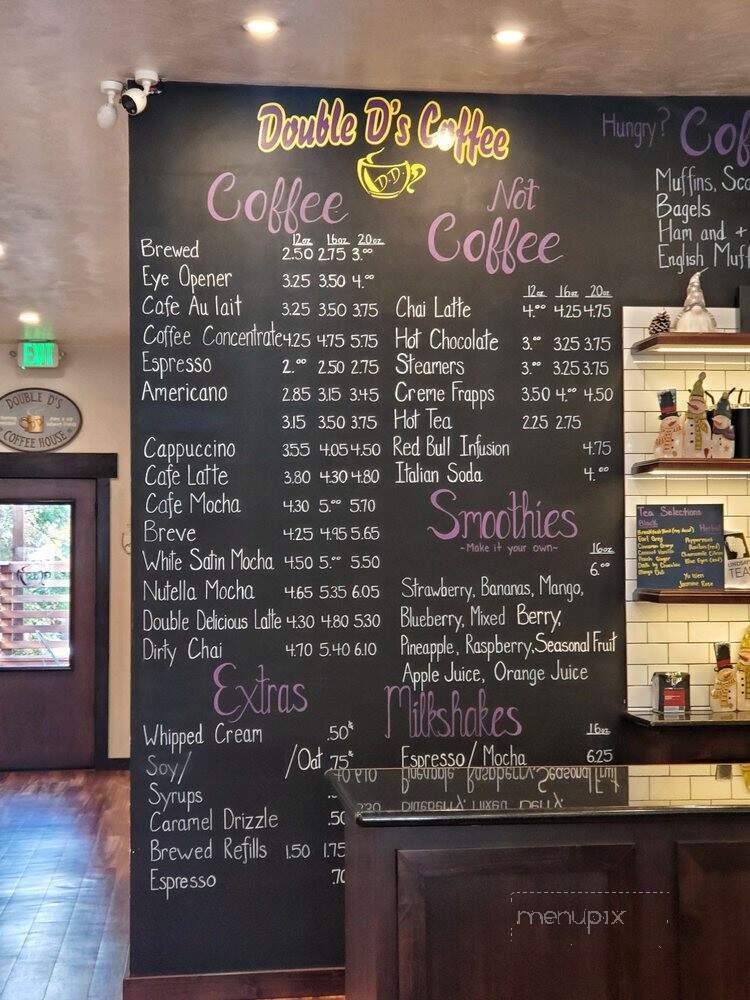 Double D's Coffee
D.D.
Coffee
12oz 16oz 20oz
Brewed 2.50 2.75 3.00
Eye Opener 3.25 3.50 4.00
Cafe Au lait 3.25 3.50 3.75
Coffee Concentrate 4.25 4.75 5.75
Espresso 2.00 2.50 2.75
Americano 2.85 3.15 3.45
3.15 3.50 3.75
Cappuccino 3.55 4.05 4.50
Cafe Latte 3.80 4.30 4.80
Cafe Mocha 4.30 5.00 5.70
Breve 4.25 4.95 5.65
White Satin Mocha 4.50 5.00 5.50
Nutella Mocha 4.65 5.35 6.05
Double Delicious Latte 4.30 4.80 5.30
Dirty Chai 4.70 5.40 6.10
Extras
Whipped Cream .50¢
Soy/ /Oat .75¢
Syrups
Caramel Drizzle .50
Brewed Refills 1.50 1.75
Espresso .70
Not
Coffee
12oz 16oz 20oz
Chai Latte 4.00 4.25 4.75
Hot Chocolate 3.00 3.25 3.75
Steamers 3.00 3.25 3.75
Creme Frapps 3.50 4.00 4.50
Hot Tea 2.25 2.75
Red Bull Infusion 4.75
Italian Soda 4.00
Smoothies
~Make it your own~ 16oz
6.00
Strawberry, Bananas, Mango,
Blueberry, Mixed Berry,
Pineapple, Raspberry, Seasonal Fruit
Apple Juice, Orange Juice
Milkshakes
16oz
Espresso/Mocha 6.25
Hungry? Cof
Muffins, Sco
Bagels
Ham and +
English Muff
EXIT
DOUBLE D'S
COFFEE HOUSE
Tea Selections
Black Herbal
Earl Grey Peppermint
Jasmine Rose
TEA
menupix